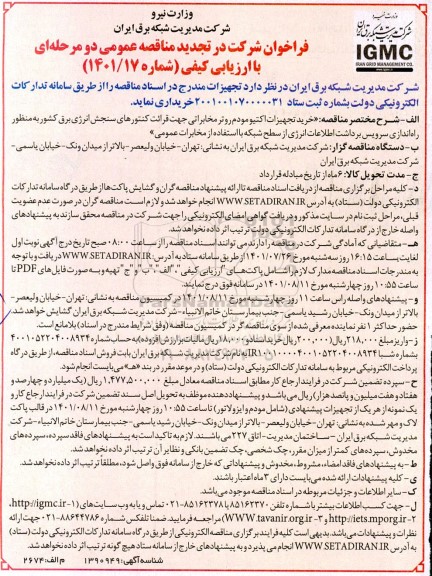 وزارت نیرو
شرکت مدیریت شبکه برق ایران
IGMC
IRAN GRID MANAGEMENT CO.
فراخوان شرکت در تجدید مناقصه عمومی دو مرحله‌ای
با ارزیابی کیفی (شماره ۱۴۰۱/۱۷)
شرکت مدیریت شبکه برق ایران در نظر دارد تجهیزات مندرج در اسناد مناقصه را از طریق سامانه تدارکات
الکترونیکی دولت بشماره ثبت ستاد ۲۰۰۱۰۰۱۰۷۰۰۰۰۰۳۱ خریداری نماید.
الف- شرح مختصر مناقصه: «خرید تجهیزات اکتیو مودم روتر مخابراتی جهت قرائت کنتورهای سنجش انرژی برق کشور به منظور
راه‌اندازی سرویس برداشت اطلاعات انرژی از سطح شبکه با استفاده از مخابرات عمومی»
ب- دستگاه مناقصه گزار: شرکت مدیریت شبکه برق ایران به نشانی: تهران- خیابان ولیعصر- بالاتر از میدان ونک- خیابان یاسمی-
شرکت مدیریت شبکه برق ایران
ج- مدت تحویل کالا: ۶ ماه از تاریخ مبادله قرارداد
د- کلیه مراحل برگزاری مناقصه از دریافت اسناد مناقصه تا ارائه پیشنهاد مناقصه گران و گشایش پاکت‌ها از طریق درگاه سامانه تدارکات
الکترونیکی دولت (ستاد) به آدرس WWW.SETADIRAN.IR انجام خواهد شد و لازم است مناقصه گران در صورت عدم عضویت
قبلی، مراحل ثبت نام در سایت مذکور و دریافت گواهی امضای الکترونیکی را جهت شرکت در مناقصه محقق سازند به پیشنهادهای
واصله خارج از درگاه سامانه تدارکات الکترونیکی دولت ترتیب اثر داده نخواهد شد.
هـ- متقاضیانی که آمادگی شرکت در مناقصه را دارند می توانند اسناد مناقصه را از ساعت ۰۸:۰۰ صبح تاریخ درج آگهی نوبت اول
لغایت ساعت ۱۶:۱۵ روز سه شنبه مورخ ۱۴۰۱/۰۷/۲۶ از طریق سامانه ستاد به آدرس: WWW.SETADIRAN.IR دریافت و با توجه
به مندرجات اسناد مناقصه مدارک لازم را شامل پاکت‌های "ارزیابی کیفی"، "الف"، "ب" و "ج" تهیه و به صورت فایل‌های PDF تا
ساعت ۱۰:۵۵ روز چهارشنبه مورخ ۱۴۰۱/۰۸/۱۱ در سامانه فوق درج نمایند.
و- پیشنهادهای واصله راس ساعت ۱۱ روز چهارشنبه مورخ ۱۴۰۱/۰۸/۱۱ در کمیسیون مناقصه به نشانی: تهران- خیابان ولیعصر-
بالاتر از میدان ونک- خیابان رشید یاسمی- جنب بیمارستان خاتم الانبیاء- شرکت مدیریت شبکه برق ایران گشایش خواهد شد،
حضور حداکثر ۱ نفر نماینده معرفی شده از سوی مناقصه گر در کمیسیون مناقصه (وفق شرایط مندرج در اسناد) بلامانع است.
ز- واریز مبلغ ۲۱۸,۰۰۰ ریال (۲۰۰,۰۰۰ ریال خرید اسناد و ۱۸,۰۰۰ ریال مالیات بر ارزش افزوده) به حساب شماره
پرداخت الکترونیکی مربوط به سامانه تدارکات الکترونیکی دولت (ستاد) و در موعد مقرر در بند «هـ» می‌بایست انجام شود.
ح- سپرده تضمین شرکت در فرایند ارجاع کار مطابق اسناد مناقصه معادل مبلغ ۱,۴۷۷,۵۰۰,۰۰۰ ریال (یک میلیارد و چهارصد و
هفتاد و هفت میلیون و پانصد هزار) ریال می باشد و پیشنهاددهنده موظف به تحویل اصل سند تضمین شرکت در فرایند ارجاع کار و
یک نمونه از هر یک از تجهیزات پیشنهادی (شامل مودم و ایزولاتور) تا ساعت ۱۰:۵۵ روز چهارشنبه مورخ ۱۴۰۱/۰۸/۱۱ در قالب پاکت
لاک و مهر شده به نشانی: تهران- خیابان ولیعصر- بالاتر از میدان ونک- خیابان رشید یاسمی- جنب بیمارستان خاتم الانبیاء- شرکت
مدیریت شبکه برق ایران- ساختمان مدیریت- اتاق ۲۲۷ می‌باشند. لازم به تاکید است به پیشنهادهای فاقد سپرده، سپرده‌های
مخدوش، سپرده‌های کمتر از میزان مقرر، چک شخصی، چک تضمین بانکی و نظایر آن ترتیب اثر داده نخواهد شد.
ط- به پیشنهادهای فاقد امضاء، مشروط، مخدوش و پیشنهاداتی که خارج از سامانه فوق واصل شود، مطلقاً ترتیب اثر داده نخواهد شد.
ی- کلیه پیشنهادات ارائه شده می‌بایست دارای ۳ ماه اعتبار باشند.
ک- سایر اطلاعات و جزئیات مربوطه در اسناد مناقصه موجود می باشد.
ل- جهت کسب اطلاعات بیشتر با شماره تلفن ۸۵۱۶۲۳۷۰ و ۰۲۱-۸۵۱۶۲۳۷۸ تماس و یا به وب سایت‌های (۱- http://igmc.ir،
۲- http://iets.mporg.ir و ۳- WWW.tavanir.org.ir) مراجعه فرمایید. ضمنا تلفکس شماره ۸۸۶۴۴۷۸۶-۰۲۱ جهت ارائه
نظرات و پیشنهادات می‌باشد. بدیهی است کلیه فرایند برگزاری مناقصه الکترونیکی از طریق درگاه سامانه تدارکات الکترونیکی دولت (ستاد)
به آدرس WWW.SETADIRAN.IR انجام می پذیرد و به پیشنهادهای خارج از سامانه ستاد هیچ گونه ترتیب اثر داده نخواهد شد.
شناسه آگهی: ۱۳۹۰۹۴۹
م الف: ۲۶۷۴